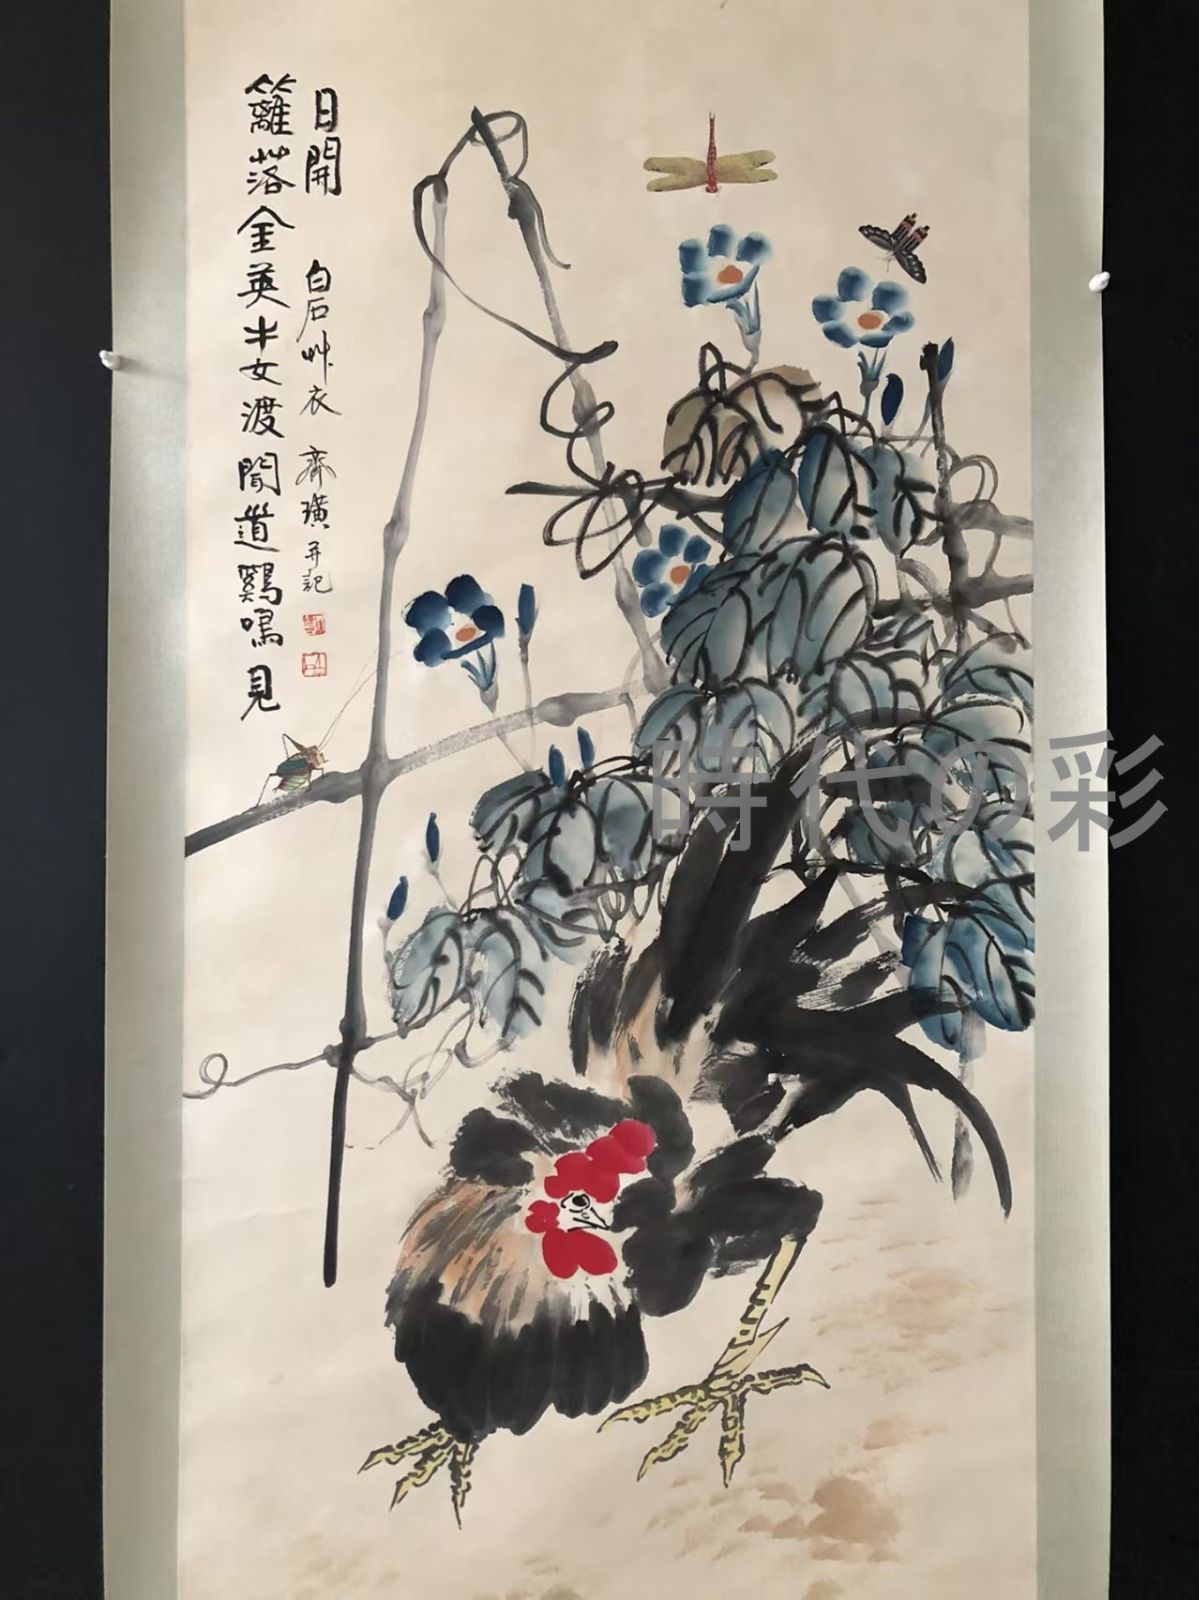 籬落金英牛女渡聞道鷄鳴見
日開
白石艸衣 齊璜并記
時代の彩